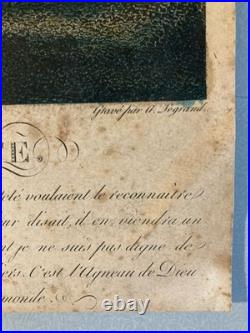 Gravé par A. Legrand.
TÉ.
teté voulaient le reconnaître
ur disait, il en viendra un
nt je ne suis pas digne de
ers. C'est l'Agneau de Dieu
monde.